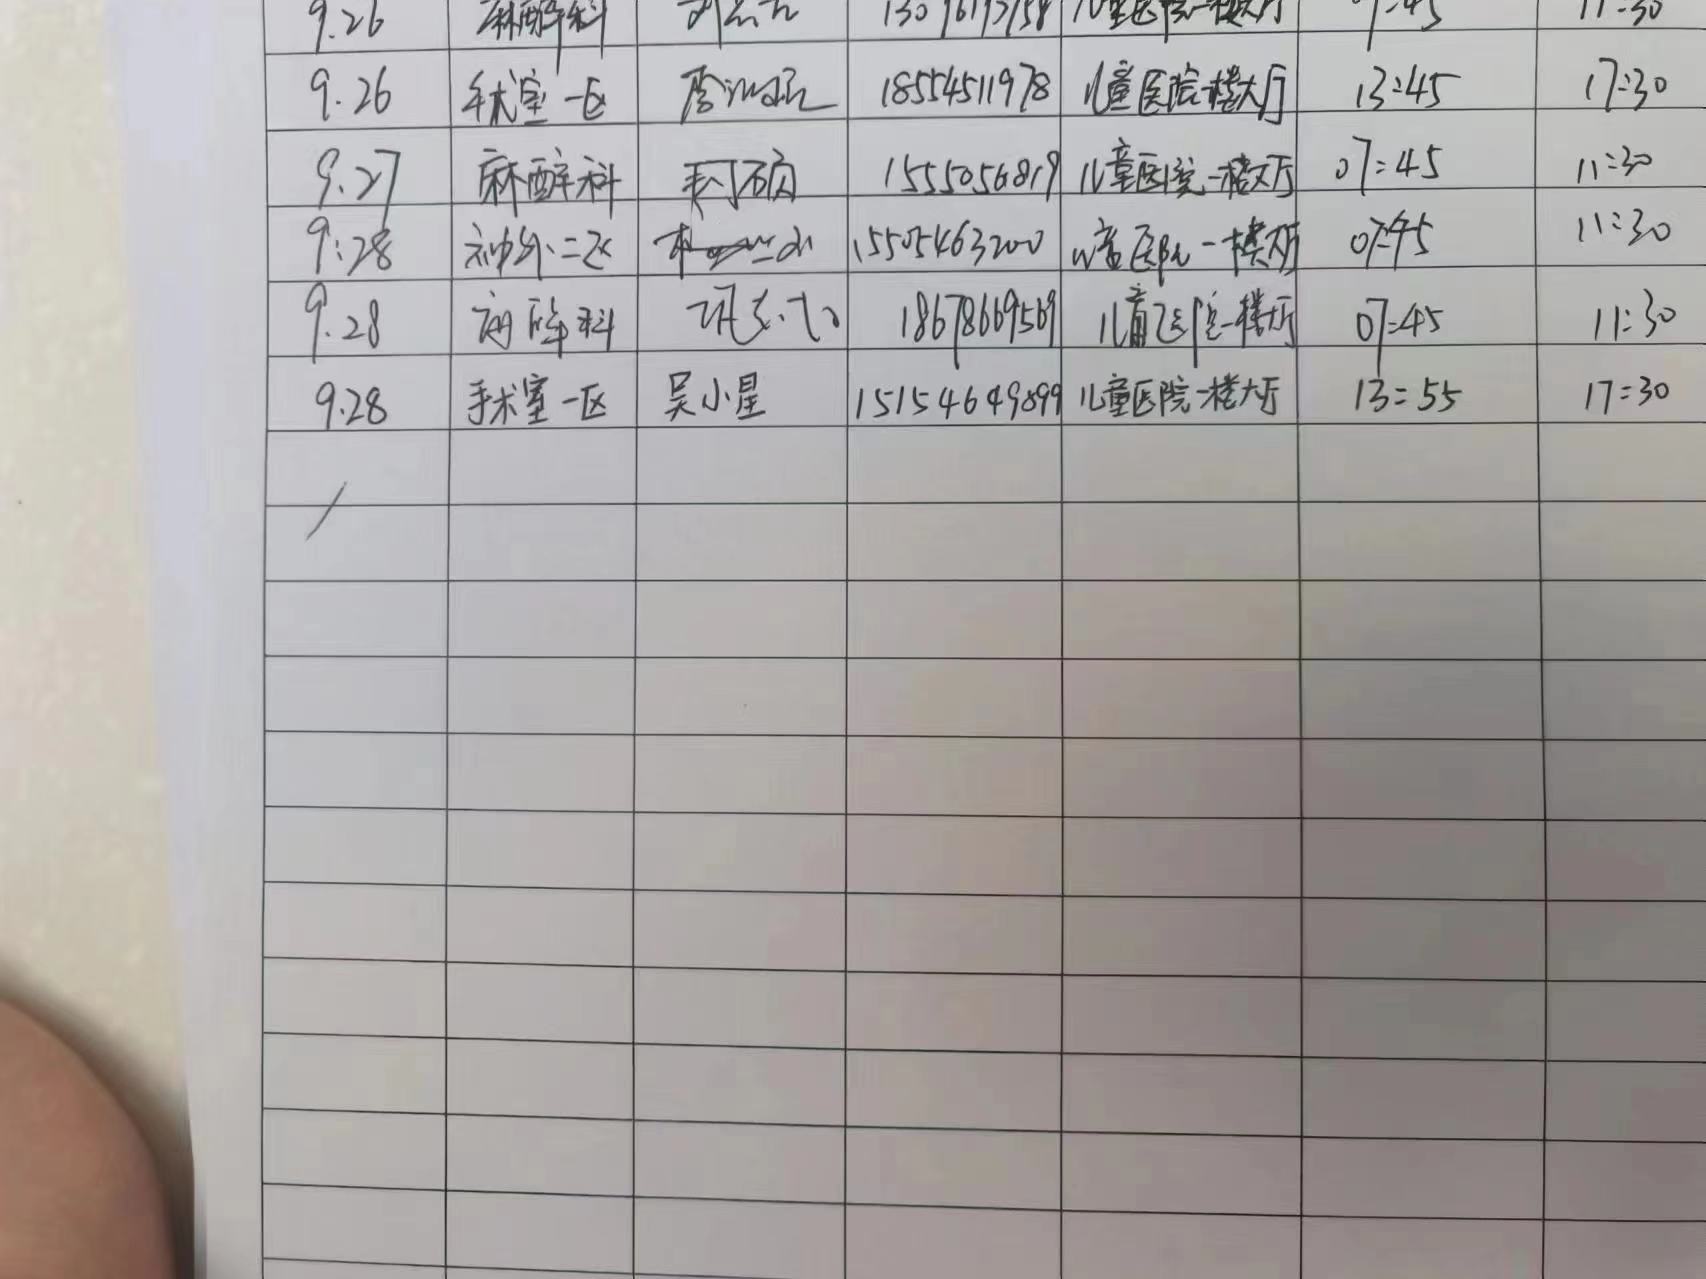 9.26 麻醉科 儿童医院一楼大厅 07:45 11:30
9.26 手术室一区 18554511978 儿童医院一楼大厅 13:45 17:30
9.27 麻醉科 封硕 1555056819 儿童医院一楼大厅 07:45 11:30
9:28 神外二区 15505463200 儿童医院一楼大厅 07:45 11:30
9.28 麻醉科 18678669569 儿童医院一楼大厅 07:45 11:30
9.28 手术室一区 吴小星 15154649899 儿童医院一楼大厅 13:55 17:30